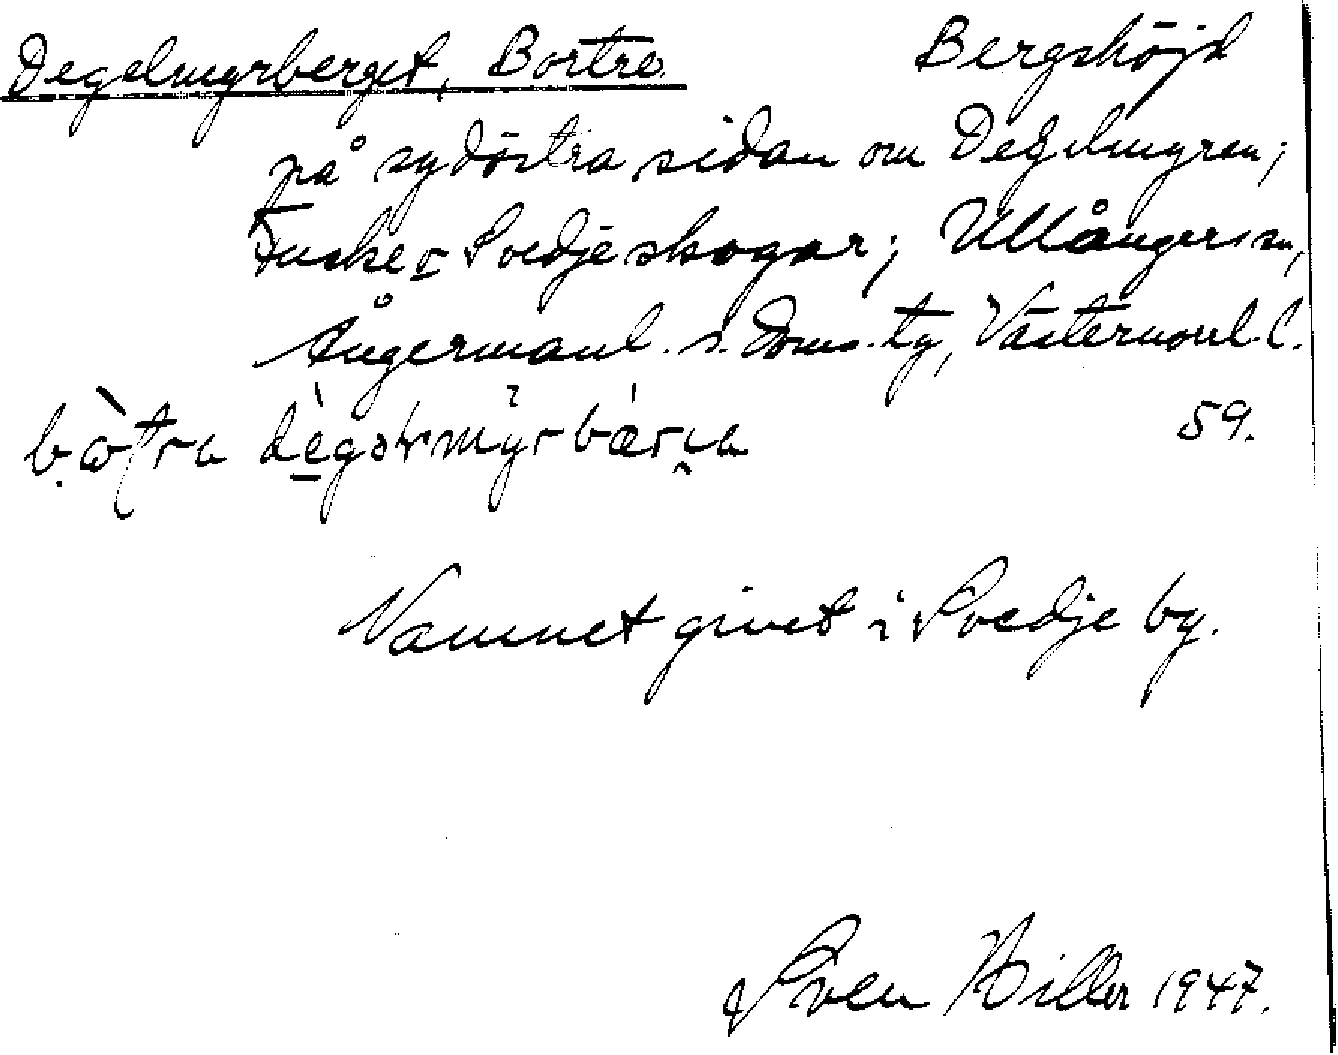 Degelmyrberget, Bortre. Bergshöjd
på sydöstra sidan om Degelmyren;
Fuske o Svedje skogar; Ullångers sn,
Ångermanl. s. doms. tg, Västernorrl. l.
59.
Namnet givet i Svedje by.
Sven Hiller 1947.